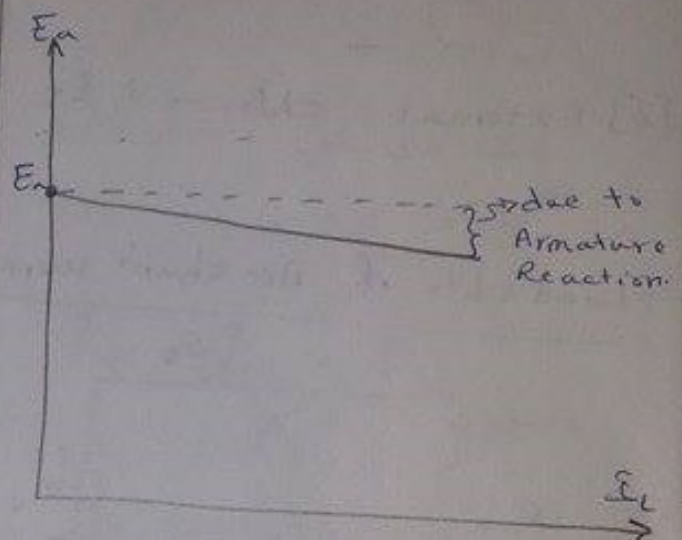 Ea
due to
Armature
Reaction.
IL